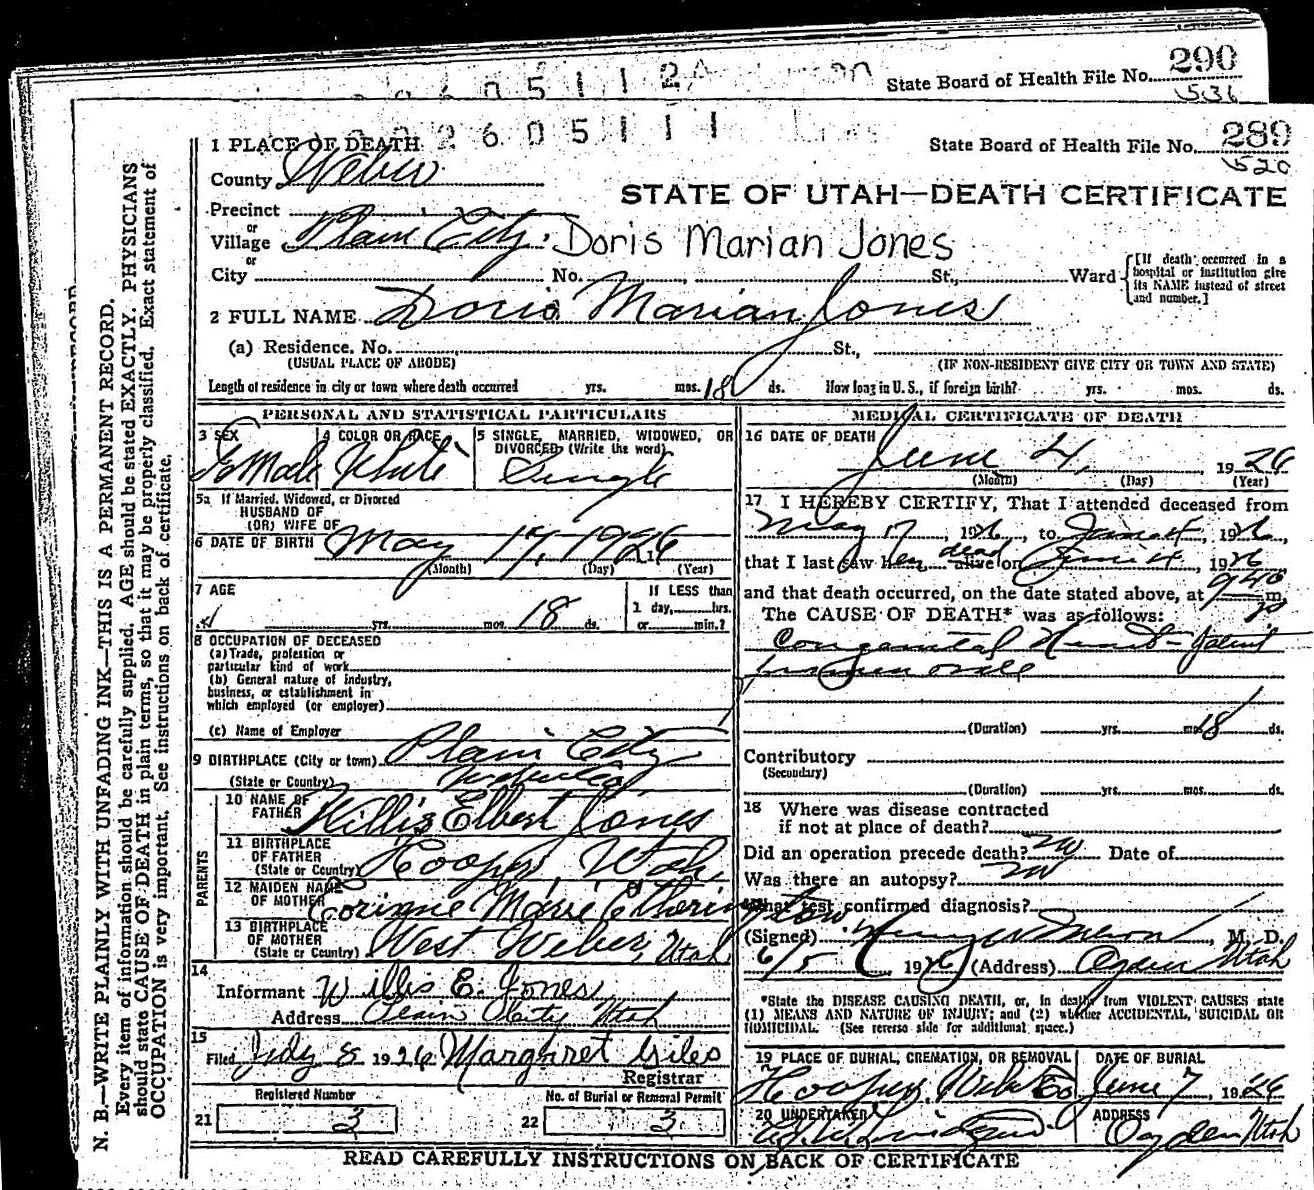 290
State Board of Health File No.
536
2 6 0 5 1 1 1
State Board of Health File No. 289
520
1 PLACE OF DEATH
County Weber
STATE OF UTAH—DEATH CERTIFICATE
Precinct
or
Village Plain City. Doris Marian Jones
or
City No. St., Ward
[If death occurred in a hospital or institution give its NAME instead of street and number.]
2 FULL NAME Doris Marian Jones
(a) Residence. No. St.,
(USUAL PLACE OF ABODE) (IF NON-RESIDENT GIVE CITY OR TOWN AND STATE)
Length of residence in city or town where death occurred yrs. mos. 18 ds. How long in U. S., if foreign birth? yrs. mos. ds.
PERSONAL AND STATISTICAL PARTICULARS
3 SEX 4 COLOR OR RACE 5 SINGLE, MARRIED, WIDOWED, OR DIVORCED (Write the word)
White Single
5a If Married, Widowed, or Divorced
HUSBAND OF
(OR) WIFE OF
6 DATE OF BIRTH May 17, 1926
(Month) (Day) (Year)
7 AGE
yrs. mos. 18 ds.
If LESS than
1 day, hrs.
or min.?
8 OCCUPATION OF DECEASED
(a) Trade, profession or
particular kind of work
(b) General nature of industry,
business, or establishment in
which employed (or employer)
(c) Name of Employer
9 BIRTHPLACE (City or town) Plain City
(State or Country)
PARENTS
10 NAME OF FATHER Willis Elbert Jones
11 BIRTHPLACE OF FATHER (State or Country) Hooper, Utah,
12 MAIDEN NAME OF MOTHER Corinne Marie
13 BIRTHPLACE OF MOTHER (State or Country) West Weber, Utah
14
Informant Willis E. Jones
Address Plain City Utah
15
Filed July 8 1926 Margaret Giles
Registrar
Registered Number
21 3
No. of Burial or Removal Permit
22 3
MEDICAL CERTIFICATE OF DEATH
16 DATE OF DEATH
June 4, 1926
(Month) (Day) (Year)
17 I HEREBY CERTIFY, That I attended deceased from
May 17, 1926, to June 4, 1926,
that I last saw her dead alive on June 4, 1926
and that death occurred, on the date stated above, at 9 40 p m.
The CAUSE OF DEATH* was as follows:
Congenital Heart
(Duration) yrs. mos. 18 ds.
Contributory
(Secondary)
(Duration) yrs. mos. ds.
18 Where was disease contracted
if not at place of death?
Did an operation precede death? no Date of
Was there an autopsy? no
What test confirmed diagnosis?
(Signed) , M. D.
6/5, 1926 (Address) Ogden Utah
*State the DISEASE CAUSING DEATH, or, in deaths from VIOLENT CAUSES state
(1) MEANS AND NATURE OF INJURY; and (2) whether ACCIDENTAL, SUICIDAL OR
HOMICIDAL. (See reverse side for additional space.)
19 PLACE OF BURIAL, CREMATION, OR REMOVAL DATE OF BURIAL
Hooper, Web Co June 7, 1926
20 UNDERTAKER ADDRESS
Ogden Utah
READ CAREFULLY INSTRUCTIONS ON BACK OF CERTIFICATE
N. B.—WRITE PLAINLY WITH UNFADING INK—THIS IS A PERMANENT RECORD.
Every item of information should be carefully supplied. AGE should be stated EXACTLY. PHYSICIANS
should state CAUSE OF DEATH in plain terms, so that it may be properly classified. Exact statement of
OCCUPATION is very important. See instructions on back of certificate.